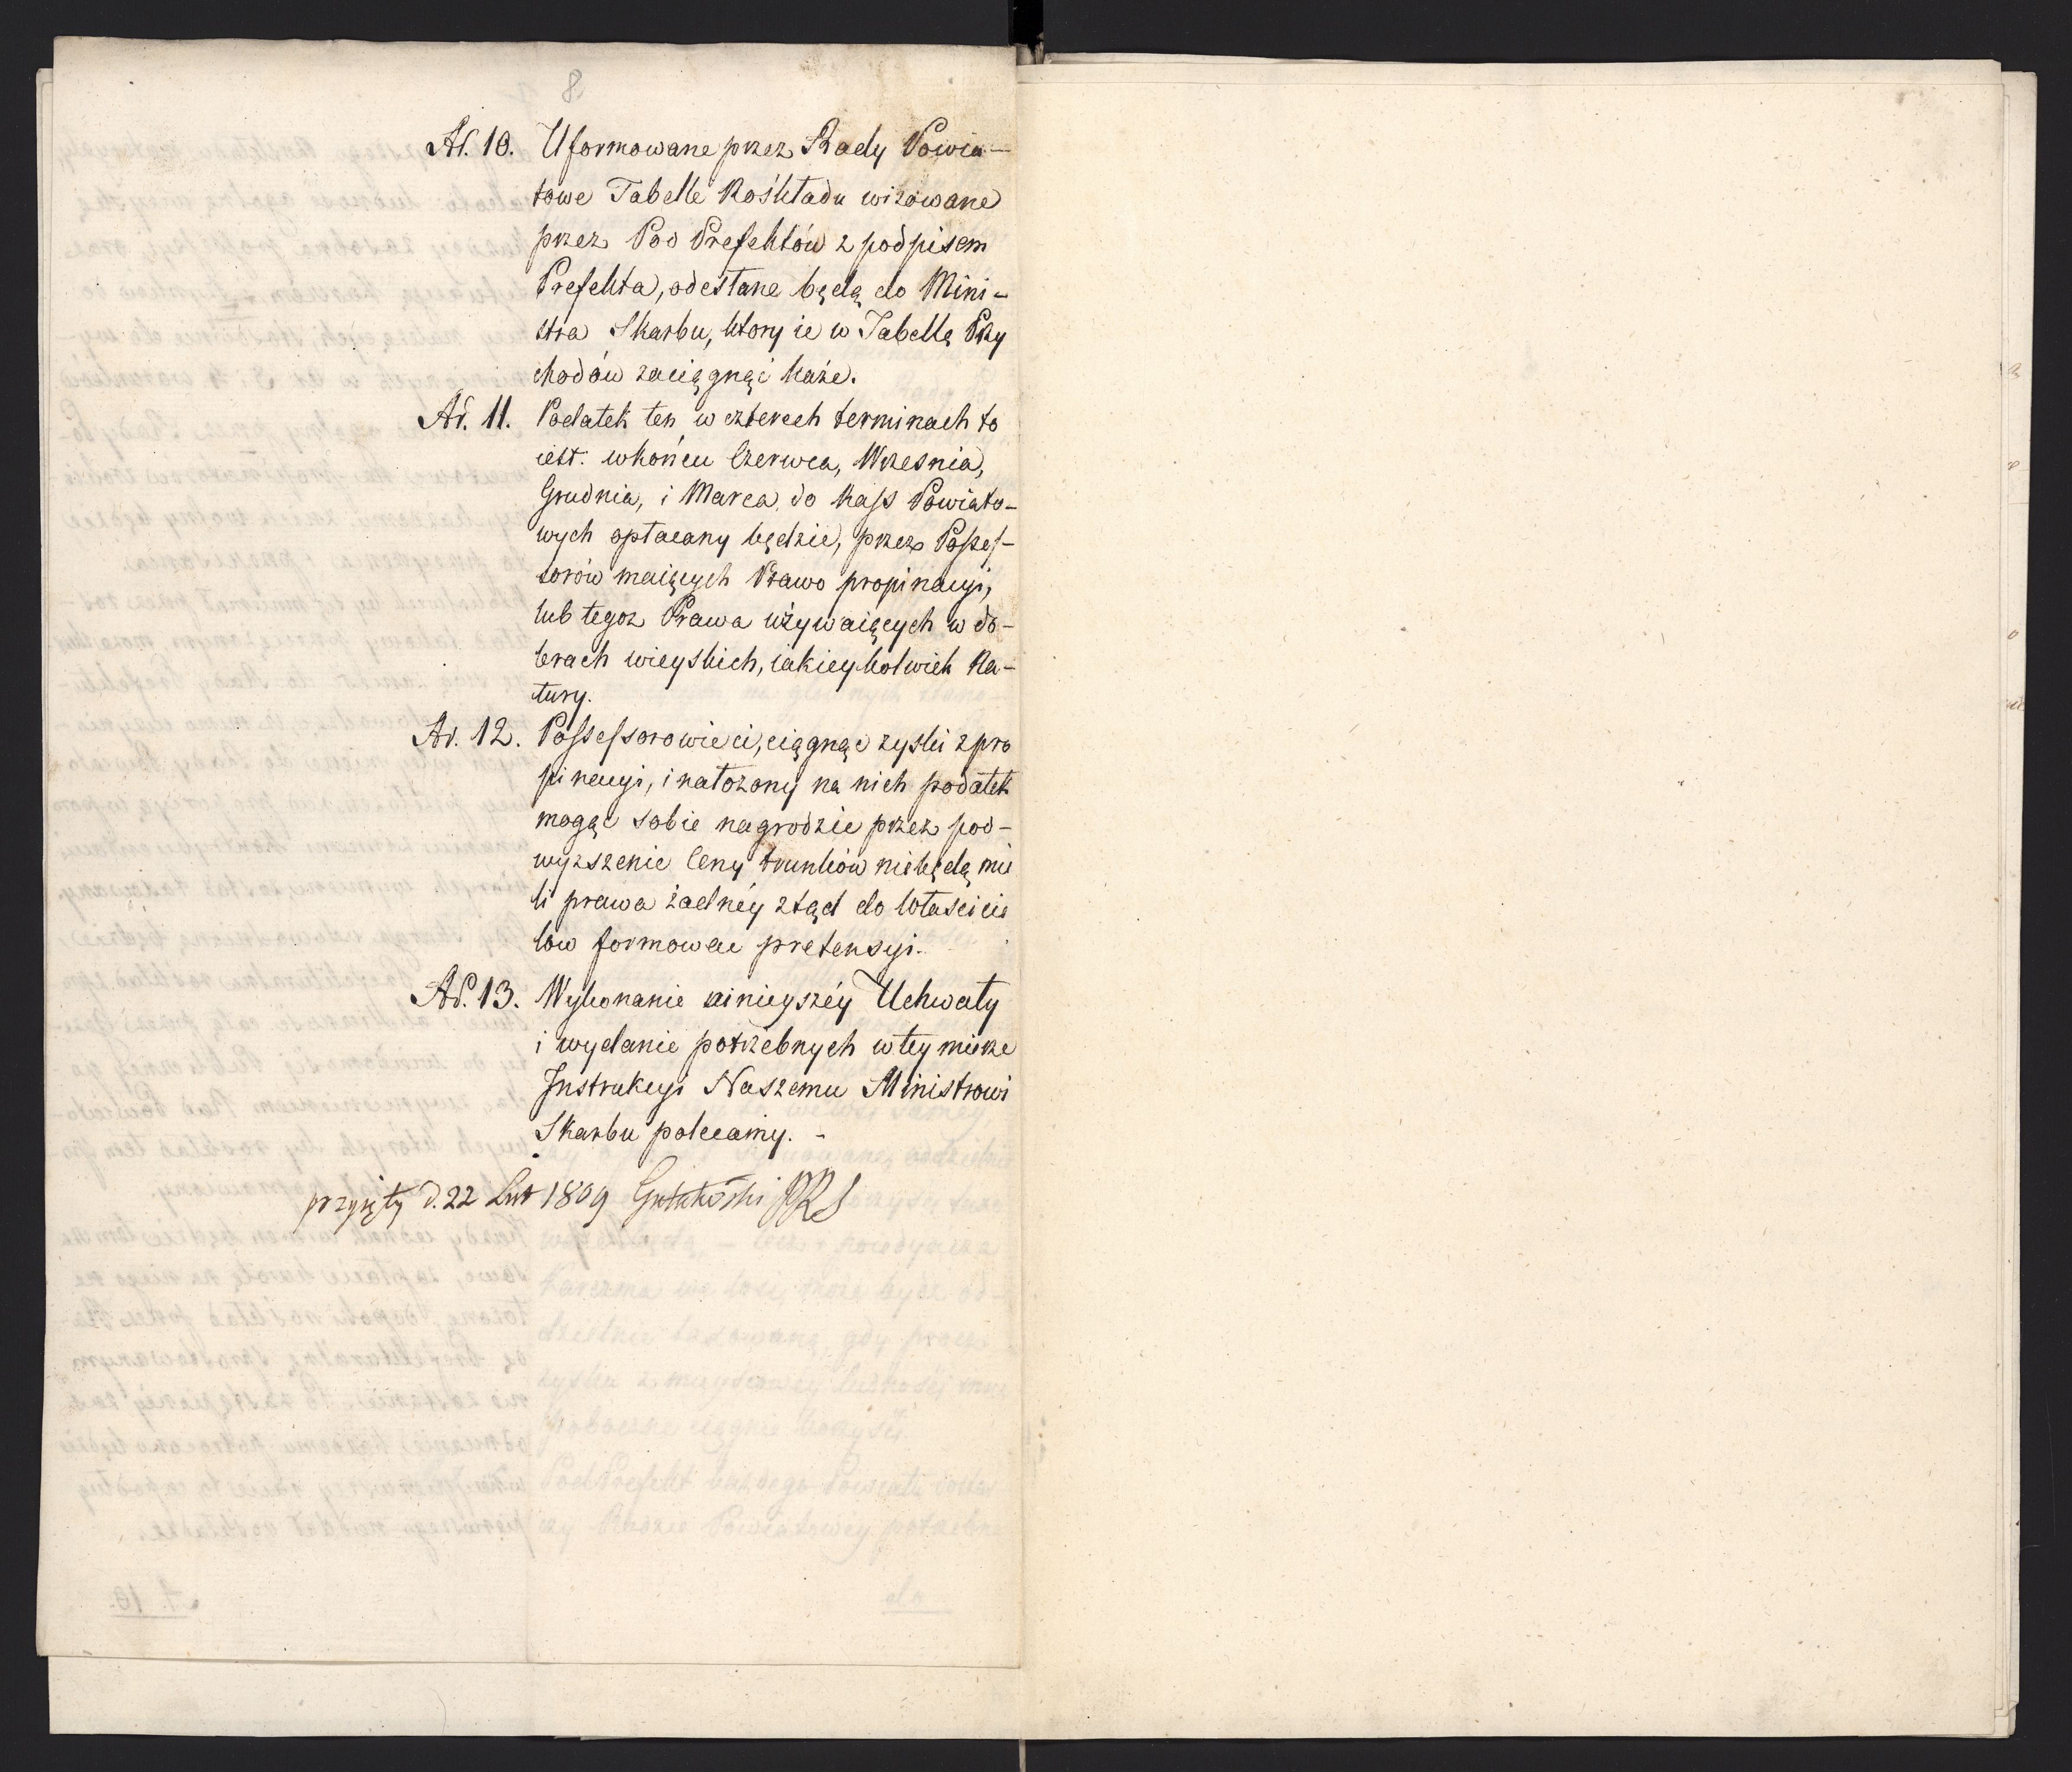 8
Ad. 10. Uformowane przez Rady Powia-
towe Tabelle Rozkładu wizowane
przez Pod Prefektów z podpisem
Prefekta, odesłane będą do Mini-
stra Skarbu, ktory ie w Tabellę Przy
chodów zaciągnąć każe.
Ad. 11. Podatek ten w czterech terminach to
iest. w końcu Czerwca, Wrzesnia,
Grudnia, i Marca do Kass Powiato-
wych opłacany będzie, przez Posses-
sorów maiących Prawo propinacyi,
lub tegoz Prawa używaiących w do-
brach wieyskich, iakieykolwiek Na-
tury.
Ad. 12. Possessorowie ci, ciągnąc zyski z pro
pinacyi, i nałozony na nich podatek
mogąc sobie nagrodzic przez pod-
wyzszenie Ceny trunków niebędą mie
li prawa żadnéy ztąd do Właścicie
low formowac pretensyi.
Ad. 13. Wykonanie ninieyszéy Uchwały
i wydanie potrzebnych w tey mierze
Instrukcyi Naszemu Ministrowi
Skarbu polecamy. -
przyięty d. 22 Lut 1809 Gutakoski PRS